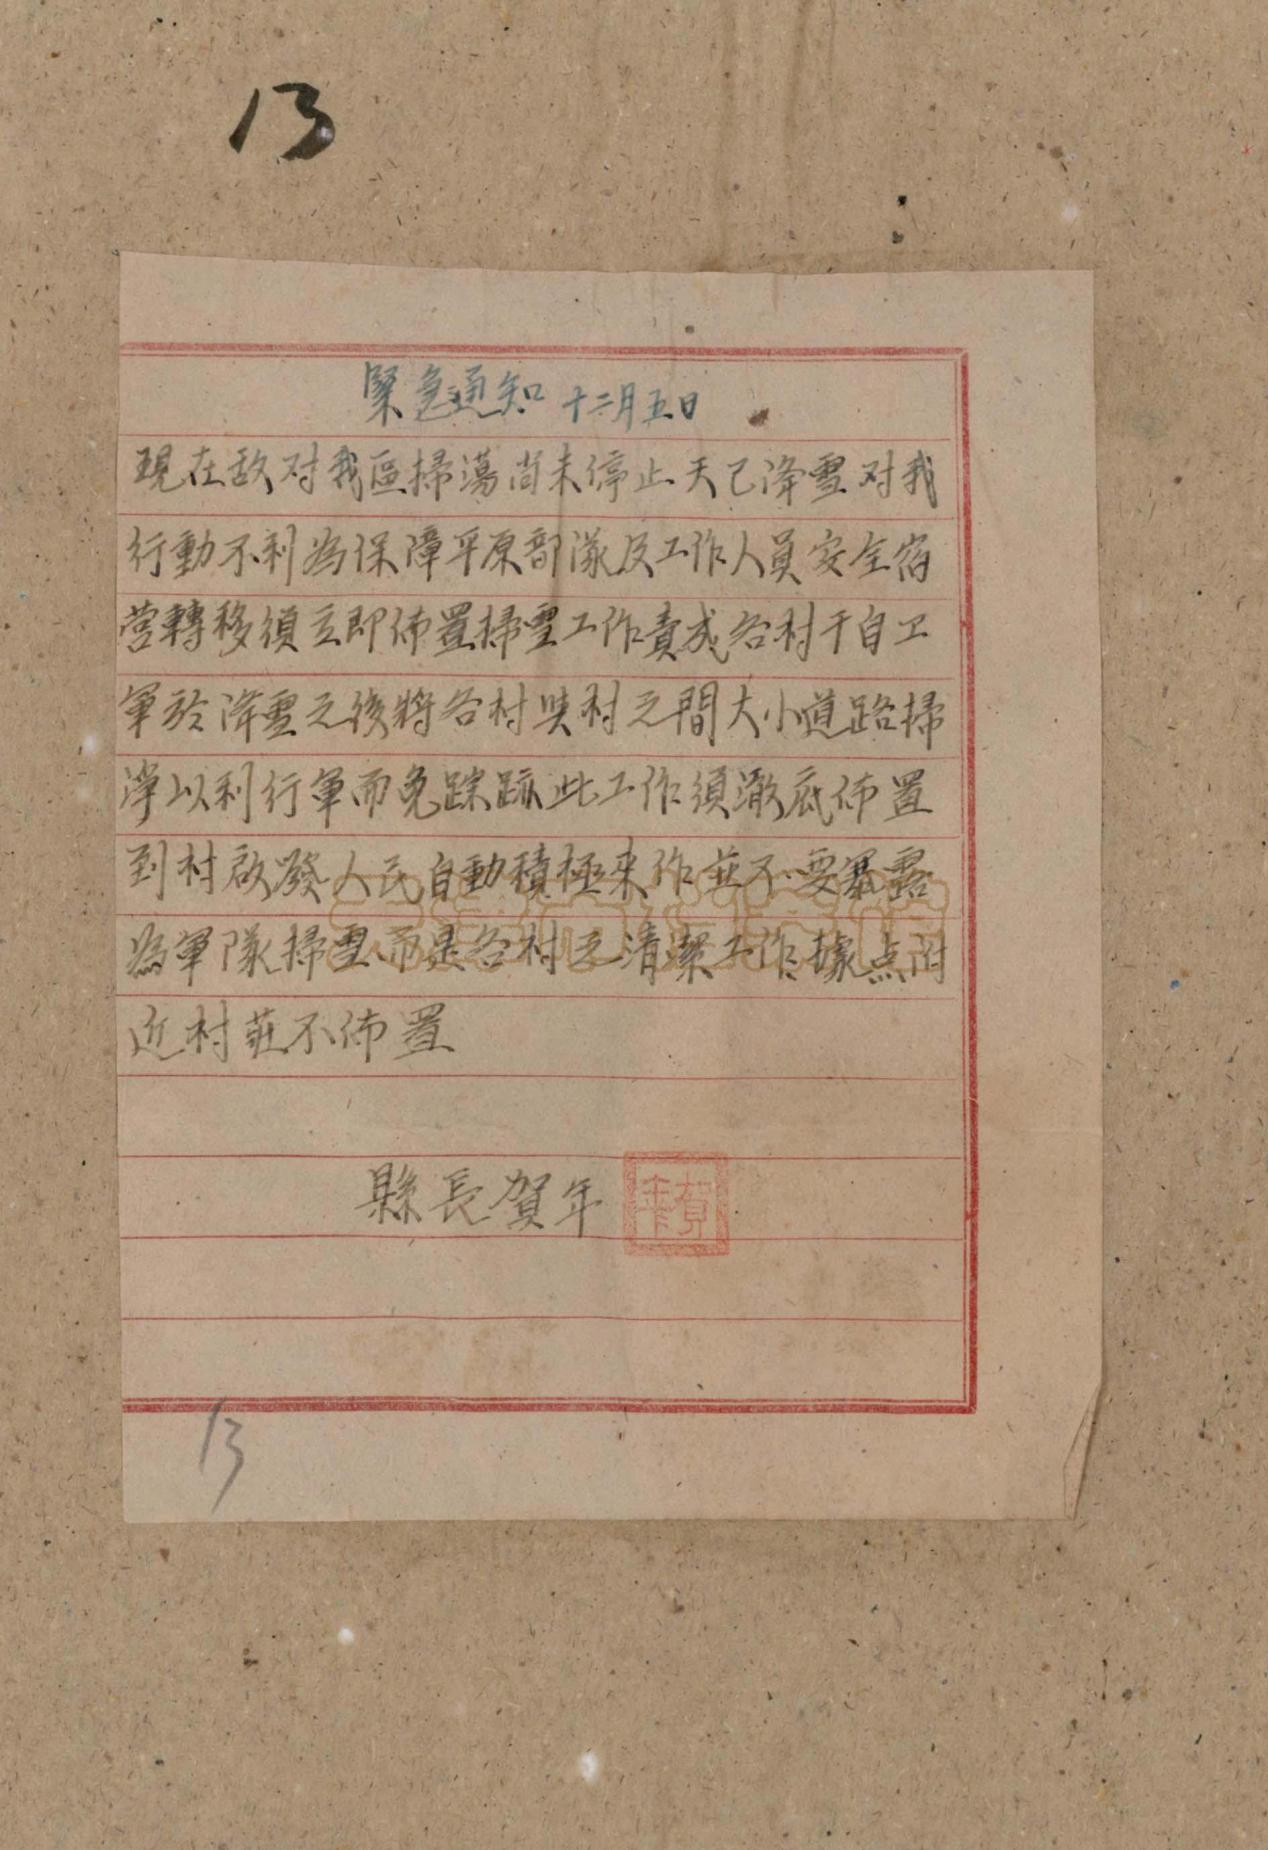 13
緊急通知 十二月五日
現在敌对我區掃蕩尚未停止天已降雪对我
行動不利為保障平原部隊及工作人員安全宿
营轉移須立即佈置掃雪工作責成各村干自卫
軍於降雪之後將各村與村之間大小道路掃
淨以利行軍而免踪跡此工作須澈底佈置
到村啟發人民自動積極來作並不要暴露
為軍隊掃雪而是各村之清潔工作據点附
近村莊不佈置
縣長賀年
賀年
13